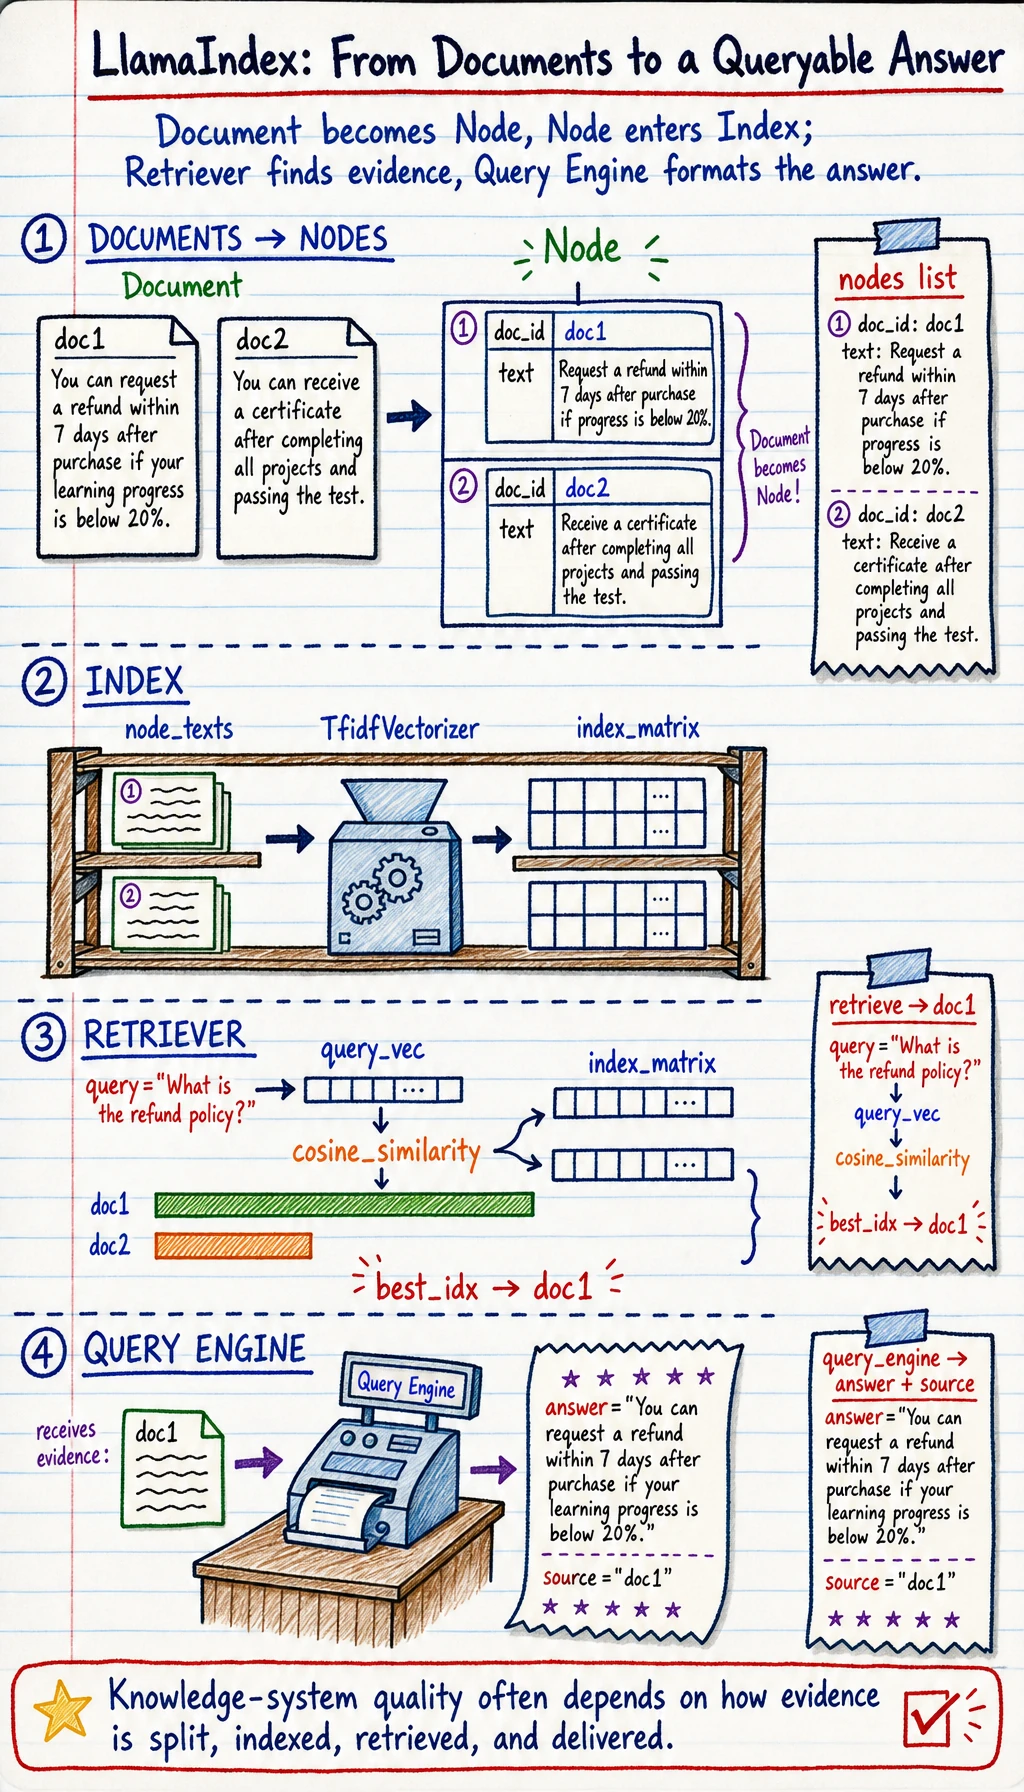 LlamaIndex: From Documents to a Queryable Answer
Document becomes Node, Node enters Index;
Retriever finds evidence, Query Engine formats the answer.
1 DOCUMENTS → NODES
Document
doc1
You can request
a refund within
7 days after
purchase if your
learning progress
is below 20%.
doc2
You can receive
a certificate
after completing
all projects and
passing the test.
Node
1 doc_id doc1
text Request a refund within
7 days after purchase
if progress is below 20%.
2 doc_id doc2
text Receive a certificate
after completing all
projects and passing
the test.
Document
becomes
Node!
nodes list
1 doc_id: doc1
text: Request a
refund within
7 days after
purchase if
progress is
below 20%.
2 doc_id: doc2
text: Receive a
certificate after
completing all
projects and
passing the test.
2 INDEX
node_texts TfidfVectorizer index_matrix
1
2
...
...
...
...
3 RETRIEVER
query="What is
the refund policy?"
query_vec
...
index_matrix
...
...
cosine_similarity
doc1
doc2
best_idx → doc1
retrieve → doc1
query="What is
the refund policy?"
query_vec
cosine_similarity
best_idx → doc1
4 QUERY ENGINE
receives
evidence:
doc1
Query Engine
answer="You can
request a refund
within 7 days after
purchase if your
learning progress is
below 20%."
source="doc1"
query_engine →
answer + source
answer="You can
request a refund
within 7 days after
purchase if your
learning progress is
below 20%."
source="doc1"
Knowledge-system quality often depends on how evidence
is split, indexed, retrieved, and delivered.